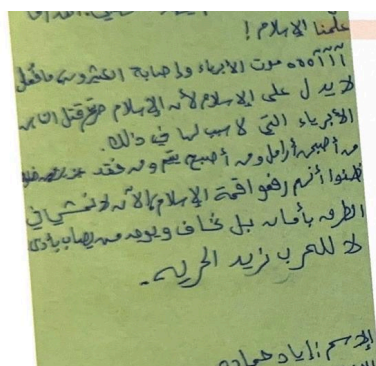 علّمنا الإسلام!
آآآه٥٥ موت الأبرياء وإصابة الكثيرون ما فعل
لا يدل على الإسلام لأن الإسلام حرّم قتل الناس
الأبرياء التي لا سبب لها في ذلك.
من أصبحن أرامل ومن أصبح يتم ومن فقد
ظنوا أنهم رفعوا قمة الإسلام الآن لا نمشي في
الطرق بأمان بل نخاف ويوجد من يصاب بأذى
لا للحرب نريد الحرية.
الإسم: إياد